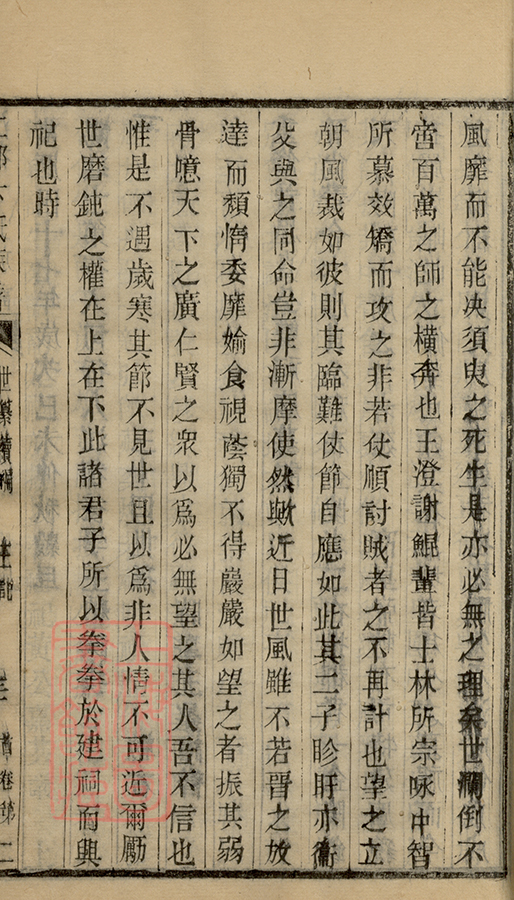 風靡而不能决須臾之死生是亦必無之理矣世瀾倒不
啻百萬之師之橫奔也王澄謝鯤輩皆士林所宗咏中智
所慕效矯而攻之非若仗順討賊者之不再計也望之立
朝風裁如彼則其臨難仗節自應如此其二子眕盱亦衛
父與之同命豈非漸摩使然歟近日世風雖不若晉之放
達而頹惰委靡婾食視蔭獨不得巖巖如望之者振其弱
骨噫天下之廣仁賢之衆以爲必無望之其人吾不信也
惟是不遇歲寒其節不見世且以爲非人情不可近爾勵
世磨鈍之權在上在下此諸君子所以拳拳於建祠而興
祀也時
世纂續編
首卷第二